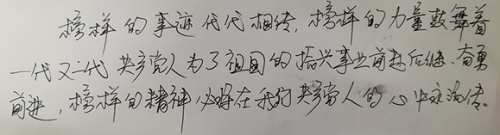 榜样的事迹代代相传，榜样的力量鼓舞着
一代又一代共产党人为了祖国的振兴事业前赴后继、奋勇
前进，榜样的精神必将在我们共产党人的心中永流传。